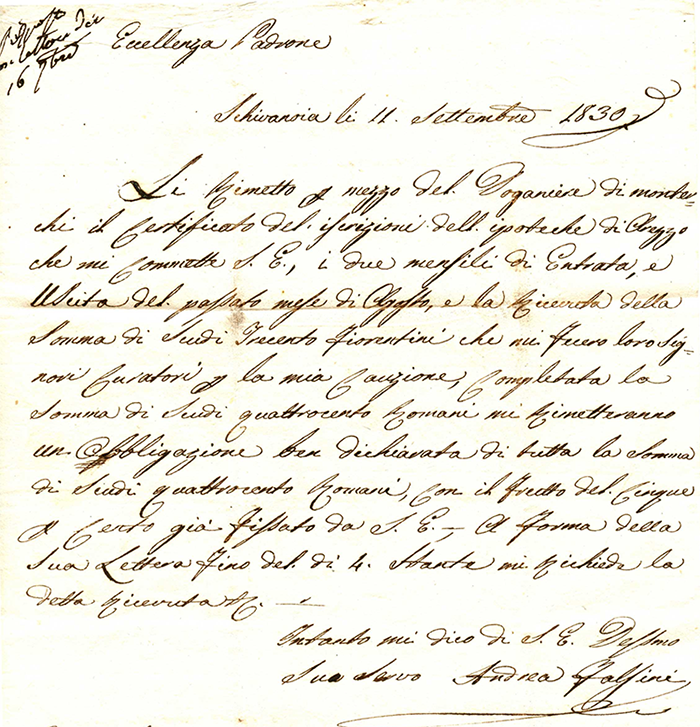 Risposto
con lettera dei
16 7bre
Eccellenza Padrone
Schivanoia li 11. Settembre 1830
Li Rimetto p mezzo del Doganiere di monte=
chi il Certificato del iscrizioni dell ipoteche di Arezzo
che mi Commette S. E., i due mensili di Entrata, e
Uscita del passato mese di Agosto, e la Ricevuta della
Somma di Scudi Trecento Fiorentini che mi fecero loro Sig=
nori Curatori p la mia Cauzione, Completata la
Somma di Scudi quattrocento Romani mi Rimetteranno
un Obbligazione ben dichiarata di tutta la Somma
di Scudi quattrocento Romani, Con il frutto del Cinque
p Cento già fissato da S. E. – A forma della
Sua Lettera fino del di 4. Stante mi Richiede la
detta Ricevuta &. —
Intanto mi dico di S. E. Dessmo
Suo Servo Andrea Falsini